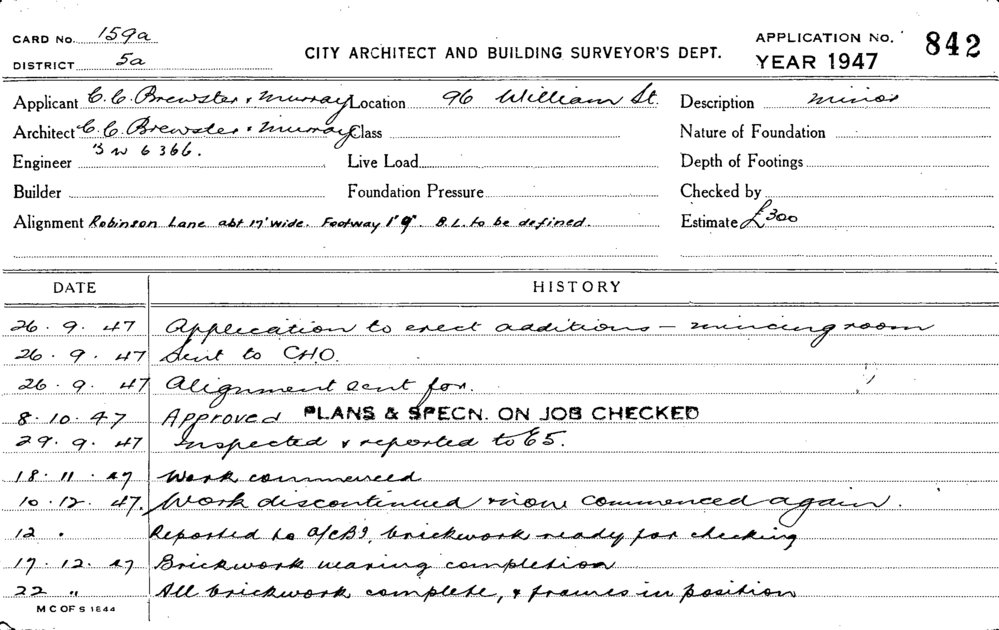 CARD No. 159a
DISTRICT 5a
CITY ARCHITECT AND BUILDING SURVEYOR'S DEPT.
APPLICATION No. 842
YEAR 1947
Applicant C. C. Brewster & Murray Location 96 William St. Description minor
Architect C. C. Brewster & Murray Class Nature of Foundation
BW 6366.
Engineer Live Load Depth of Footings
Builder Foundation Pressure Checked by
Alignment Robinson Lane abt 17' wide. Footway 1' 9". B.L. to be defined. Estimate £300
DATE HISTORY
26. 9. 47 Application to erect additions – mincing room
26. 9. 47 Sent to CHO.
26. 9. 47 Alignment sent for.
8. 10. 47 Approved PLANS & SPECN. ON JOB CHECKED
29. 9. 47 Inspected & reported to E5.
18. 11. 47 Work commenced
10. 12. 47. Work discontinued & now commenced again.
12 " Reported to brickwork ready for checking
17. 12. 47 Brickwork nearing completion
22 " All brickwork complete, & frames in position
M C OF S 1844